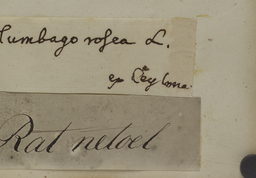 lumbago rosea L.
ex Ceylona
Rat netoel